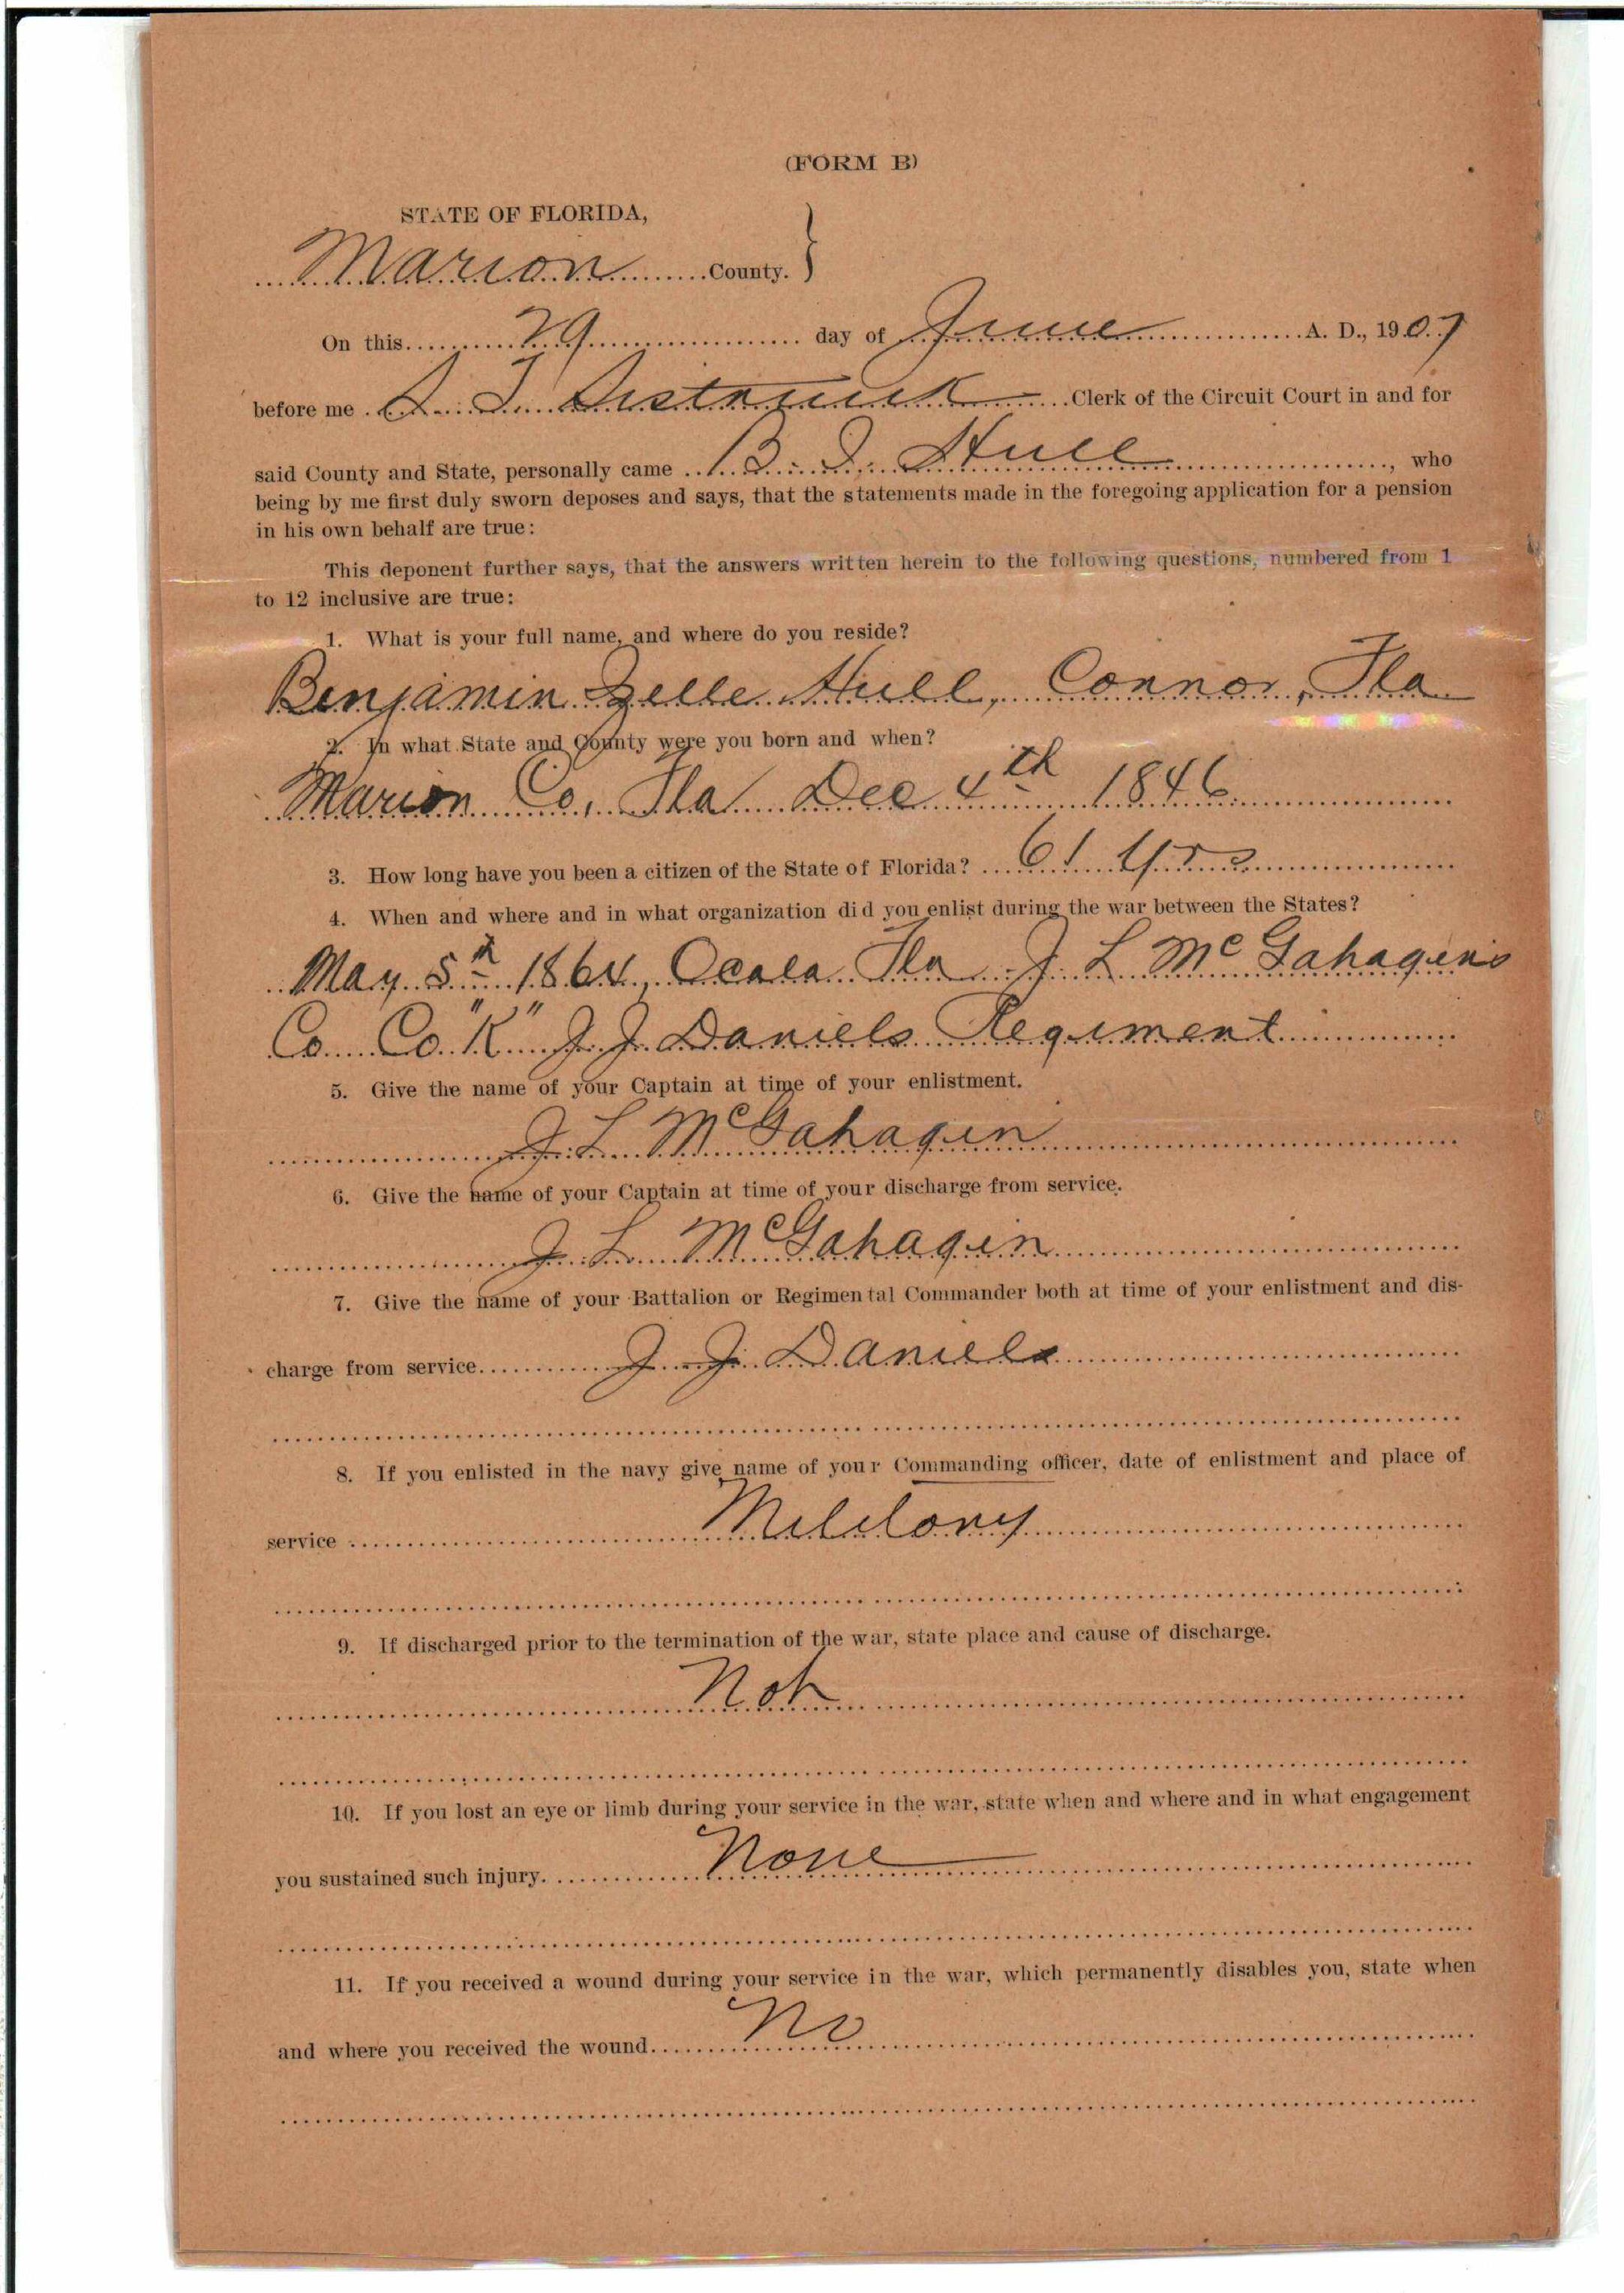 (FORM B)
STATE OF FLORIDA,
Marion County.
On this 29 day of June A. D., 1907
before me S. T. Sistrunk Clerk of the Circuit Court in and for
said County and State, personally came B. Z. Hull, who
being by me first duly sworn deposes and says, that the statements made in the foregoing application for a pension
in his own behalf are true:
This deponent further says, that the answers written herein to the following questions, numbered from 1
to 12 inclusive are true:
1. What is your full name, and where do you reside?
Benjamin Zelle Hull, Connor, Fla
2. In what State and County were you born and when?
Marion Co, Fla Dec 4th 1846
3. How long have you been a citizen of the State of Florida? 61 Yrs
4. When and where and in what organization did you enlist during the war between the States?
May 5th 1864, Ocala Fla J. L. McGahagin's
Co Co "K" J J Daniels Regiment
5. Give the name of your Captain at time of your enlistment.
J L McGahagin
6. Give the name of your Captain at time of your discharge from service.
J. L. McGahagin
7. Give the name of your Battalion or Regimental Commander both at time of your enlistment and dis-
charge from service J. J. Daniels
8. If you enlisted in the navy give name of your Commanding officer, date of enlistment and place of
service
9. If discharged prior to the termination of the war, state place and cause of discharge.
Not
10. If you lost an eye or limb during your service in the war, state when and where and in what engagement
you sustained such injury. None
11. If you received a wound during your service in the war, which permanently disables you, state when
and where you received the wound No